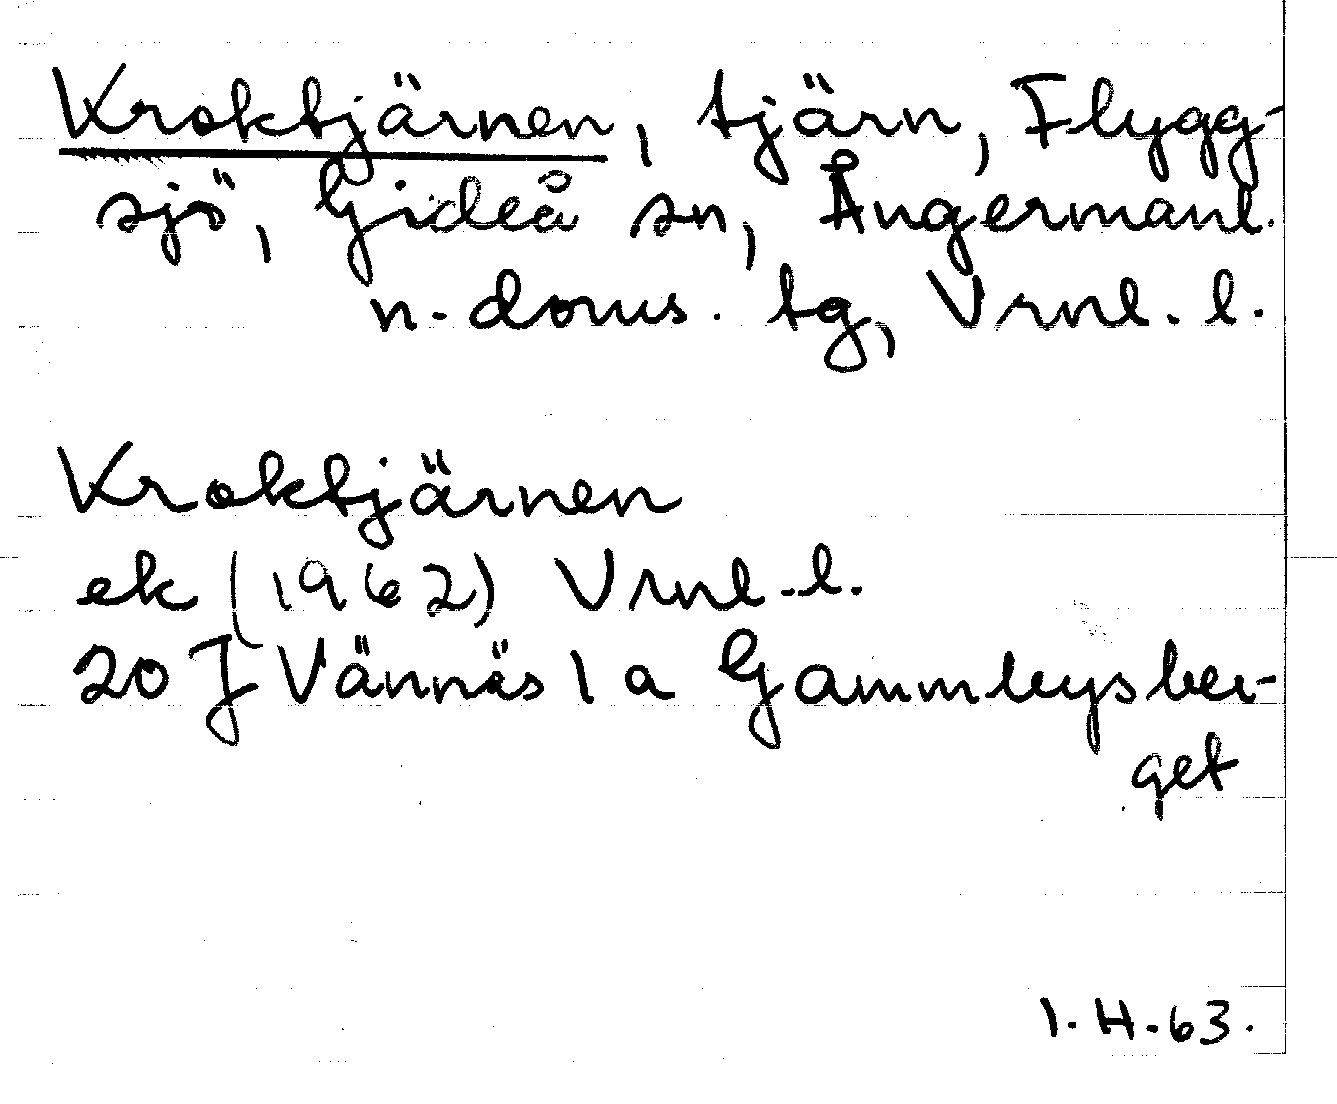 Kroktjärnen, tjärn, Flygg-
sjö, Gideå sn, Ångermanl.
n. doms. tg, Vrnl. l.
Kroktjärnen
ek (1962) Vrnl. l.
20 J Vännäs 1 a Gammbysber-
get
1.H.63.